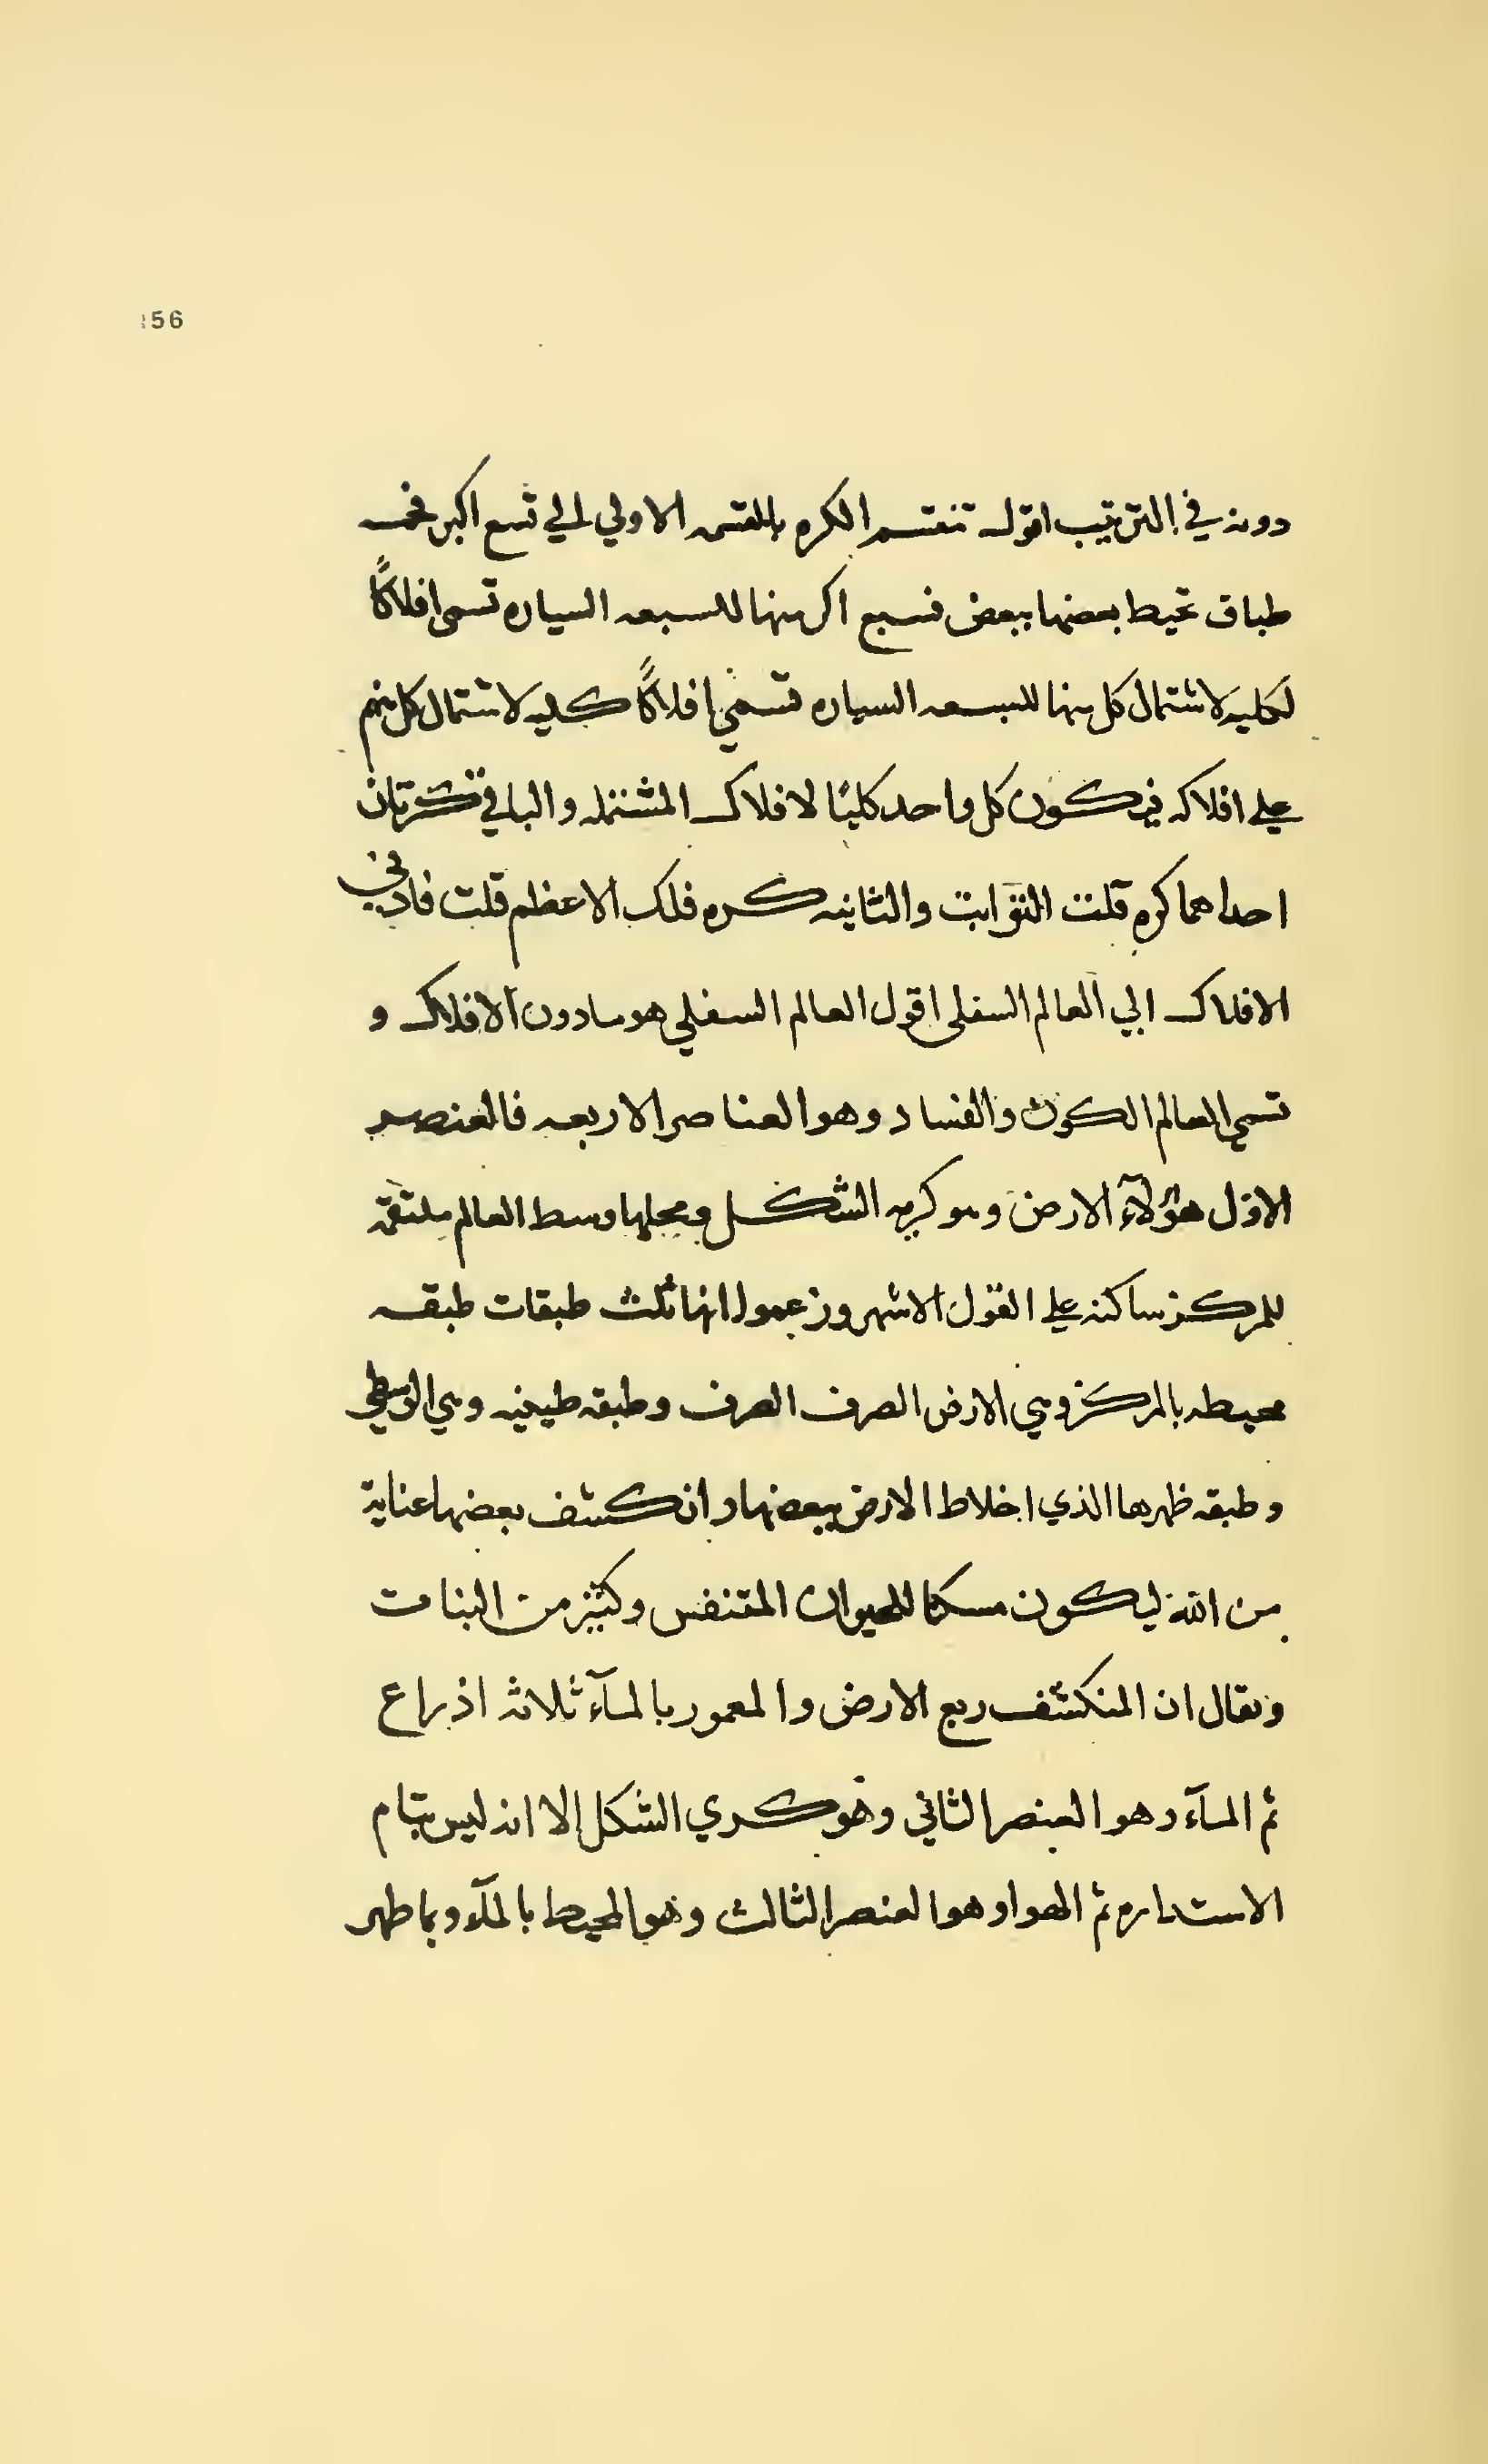 356
دونه في الترتيب اقول تنقسم الكره بالقسمه الاولي الي تسع اكر فخمسه
طباق تحيط بعضها ببعض فسبع اكر منها للسبعه السياره تسمى افلاكًا
لكليه لاشتمال كل منها للسبعه السياره تسمي افلاكًا كليه لاشتمال كل منهم
علي افلاكه فيكون كل واحد كليًا لافلاك المشتمله والباقي كرتان
احداهما كره قلت الثوابت والثانيه كره فلك الاعظم قلت فادني
الافلاك الي العالم السفلي اقول العالم السفلي هو مادون الافلاك و
تسمي العالم الكون والفساد وهو العناصر الاربعه فالعنصر
الاوّل هؤلآء الارض وهو كريه الشكل ومحلها وسط العالم ملتقه
للمركز ساكنه علي القول الاشهر وزعموا انها ثلث طبقات طبقه
محيطه بالمركز وهي الارض الصرف الصرف وطبقه طينيه وهي الوسطي
وطبقه ظهرها الذي اخلاط الارض ببعضها وانكشف بعضها عناية
من الله ليكون مسكنا للحيوان المتنفس وكثير من النبات
ويقال ان المنكشف ربع الارض والمعمور بالمآء ثلاثه اذراع
ثم المآء وهو العنصر الثاني وهو كري الشكل الا انه ليس بتام
الاستداره ثم الهوا وهو العنصر الثالث وهو المحيط بالمآء وبما طهر